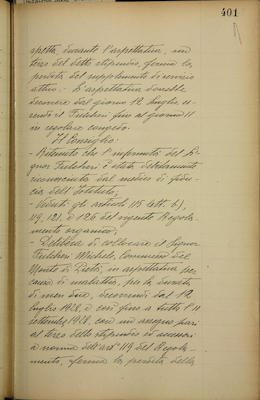 401
spetta, durante l'aspettativa, un
terzo del detto stipendio, ferma la
perdita del supplemento di servizio
attivo: L'aspettativa dovrebbe
decorrere dal giorno 12 luglio
il Fulcheri fino al giorno 11
in regolare congedo.
Il Consiglio:
- Ritenuto che l'infermità del Si-
gnor Fulcheri è stata debitamente
riconosciuta dal medico di fidu-
cia dell'Istituto;
- Veduti gli articoli 115 lett. b),
119, 121, e 126 del vigente Regola-
mento organico;
- Delibera di collocare il signor
Fulcheri Michele, Commesso del
Monte di Pietà, in aspettativa per
causa di malattia, per la durata
di mesi due, decorrendi dal 12
luglio 1928, e così fino a tutto l'11
settembre 1928, con un assegno pari
al terzo dello stipendio ed accessori
a norma dell'art. 119 del Regola-
mento, ferma la perdita della